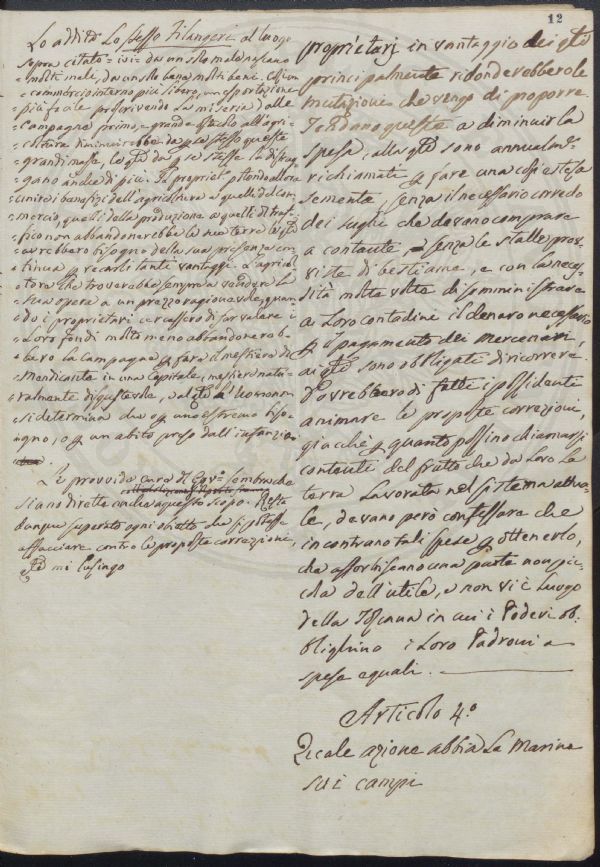 12
Lo addita Lo stesso Filangeri al luogo
sopra citato = ivi = da un solo male nascano
= molti mali, da un solo bene molti beni. Un
= commercio interno più libero, un esportazione
= più facile proscrivendo la miseria dalle
= Campagne primo, e grande ostacolo all'agri-
= coltura diminuirebbe da se stesso queste
= grandi masse, le
= gano anche di più. Il propriet.o potendo allora
= unire i benefizi dell'agricoltura a quelli del com-
= mercio, quelli della produzione a quelli di traf-
= fico non abbandonerebbe le sue terre le qli
= avrebbero bisogno della sua presenza con-
= tinua p recarli tanti vantaggi. L'agricol-
= tore che troverebbe sempre a vendere la
= sua opera a un prezzo ragionevole, quan-
= do i proprietari cercassero di far valere i
= Loro fondi molto meno abbandonereb-
= bero la Campagna p fare il mestiere di
= Mendicante in una Capitale, mestiere natu-
= ralmente disgustevole, al qle l'uomo non
= si determina che o p uno estremo biso-
= gno, o p un abito preso dall'infanzia
Le provvide cure del Gov.o sembra che
siano dirette anche a questo scopo. Resta
dunque superato ogni obietto che si potesse
affacciare contro le proposte correzioni,
Ed mi lusingo
proprietarj in vantaggio dei qli
principalmente ridonderebbero le
mutazioni che vengo di proporre
Tendano queste a diminuir la
spesa, alla qle sono annualmte
richiamati p fare una così estesa
sementa, senza il necessario corredo
dei sughi che devano comprare
a contante, senza le stalle prov-
viste di bestiame, e con la neces-
sità molte volte di somministrare
ai Loro contadini il denaro necessario
p il pagamento dei mercenari,
ai qli sono obbligati di ricorrere.
Dovrebbero di fatti i possidenti
animare le proposte correzioni,
giacché p quanto possino chiamarsi
contenti del frutto che da Loro la
terra lavorata nel sistema attua-
le, devano però confessare che
incontrano tali spese p ottenerlo,
che assorbiscano una parte non pic-
cla dell'utile, e non vi è luogo
della Toscana in cui i Poderi ob-
blighino i Loro Padroni a
spese eguali.
Articolo 4.o
Quale azione abbia la Marina
su i campi